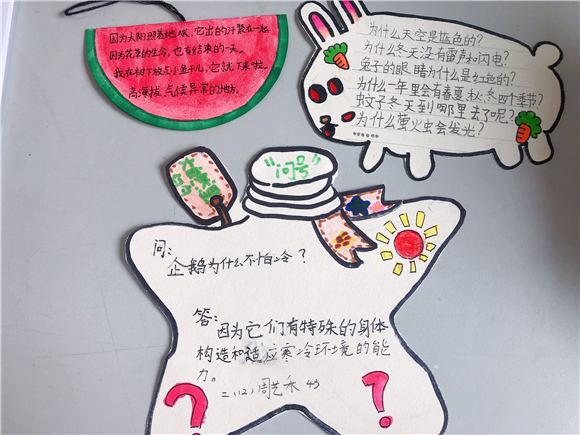 因为太阳照着地球，它出的汗聚在一起
因为花草的生命，也有结束的一天。
我在树下放点小鱼干儿，它就下来啦。
高海拔，气候异常的地方。
为什么天空是蓝色的？
为什么冬天没有雷声和闪电？
兔子的眼睛为什么是红色的？
为什么一年里会有春夏秋冬四个季节？
蚊子冬天到哪里去了呢？
为什么萤火虫会发光？
“问号”
问：
企鹅为什么不怕冷？
答：
因为它们有特殊的身体
构造和适应寒冷环境的能
力。
二（12）周艺禾 43